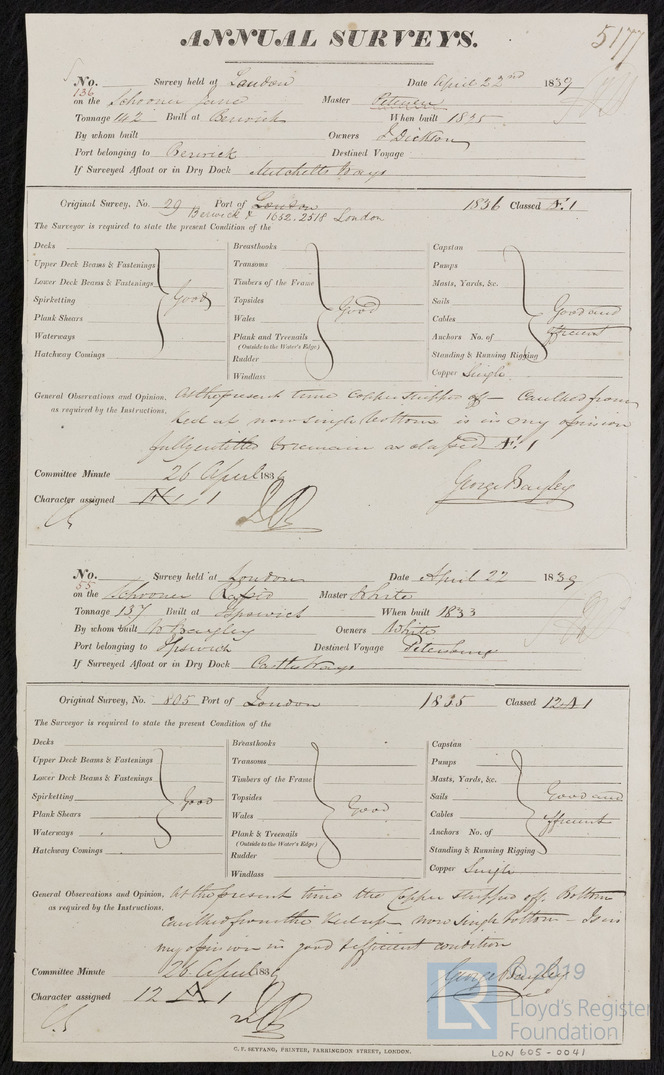 ANNUAL SURVEYS.
5177
No. 136 Survey held at London Date April 22nd 1839
on the Schooner Jane Master Petersen
Tonnage 142 Built at Berwick When built 1825
By whom built Owners J Dickson
Port belonging to Berwick Destined Voyage
If Surveyed Afloat or in Dry Dock Mitchells Ways
Original Survey, No. 29 Port of London 1836 Classed Æ 1
Berwick & 1652.2518 London
The Surveyor is required to state the present Condition of the
Decks
Upper Deck Beams & Fastenings
Lower Deck Beams & Fastenings
Spirketting Good
Plank Shears
Waterways
Hatchway Comings
Breasthooks
Transoms
Timbers of the Frame
Topsides Good
Wales
Plank and Treenails
(Outside to the Water's Edge)
Rudder
Windlass
Capstan
Pumps
Masts, Yards, &c.
Sails Good and
Cables efficient
Anchors No. of
Standing & Running Rigging
Copper Single
General Observations and Opinion, At the present time Copper stripped off – Caulked from
as required by the Instructions. Keel up now single bottom is in my opinion
fully entitled to remain as classed Æ 1
Committee Minute 26 April 1839
Character assigned Æ 1
George Bayley
No. 55 Survey held at London Date April 22 1839
on the Schooner Rapid Master White
Tonnage 137 Built at Ipswich When built 1833
By whom built W Bayley Owners White
Port belonging to Ipswich Destined Voyage Petersburg
If Surveyed Afloat or in Dry Dock Ways
Original Survey, No. 805 Port of London 1835 Classed 12 A 1
The Surveyor is required to state the present Condition of the
Decks
Upper Deck Beams & Fastenings
Lower Deck Beams & Fastenings
Spirketting Good
Plank Shears
Waterways
Hatchway Comings
Breasthooks
Transoms
Timbers of the Frame
Topsides
Wales Good
Plank & Treenails
(Outside to the Water's Edge)
Rudder
Windlass
Capstan
Pumps
Masts, Yards, &c.
Sails Good and
Cables efficient
Anchors No. of
Standing & Running Rigging
Copper Single
General Observations and Opinion, At the present time the Copper stripped off. Bottom
as required by the Instructions. Caulked from the Keel up now Single bottom – Is in
my opinion in good & efficient condition
Committee Minute 26 April 1839
Character assigned 12 A 1
George Bayley
© 2019
LR
Lloyd's Register
Foundation
C. F. SEYFANG, PRINTER, FARRINGDON STREET, LONDON.
LON 605-0041